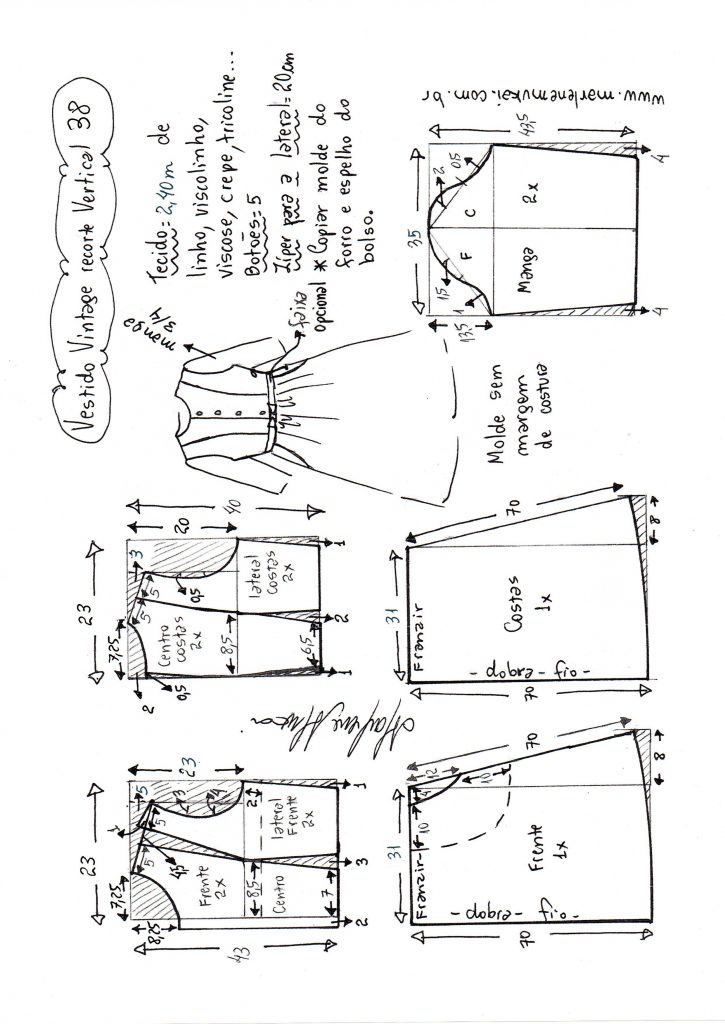 Vestido Vintage recorte Vertical 38
Tecido = 2,40m de
linho, viscolinho,
viscose, crepe, tricoline...
Botões = 5
Zíper para a lateral = 20cm
* Copiar molde do
forro e espelho do
bolso.
www.marlenemukai.com.br
manga
3/4
faixa
opcional
Molde sem
margem
de costura
35
43,5
13,5
15
1
2
0,5
F
C
Manga
2x
4
4
23
40
20
7,25
3
5
5
0,5
2
0,5
Centro
costas
2x
lateral
costas
2x
8,5
6,5
1
2
1
31
Franzir
Costas
1x
- dobra - fio -
70
70
8
23
43
23
7,25
8,25
5
5
5
3
4
4,5
2
Frente
2x
Centro
lateral
Frente
2x
8,5
7
2
3
1
31
Franzir
10
12
4
10
Frente
1x
- dobra - fio -
70
70
8